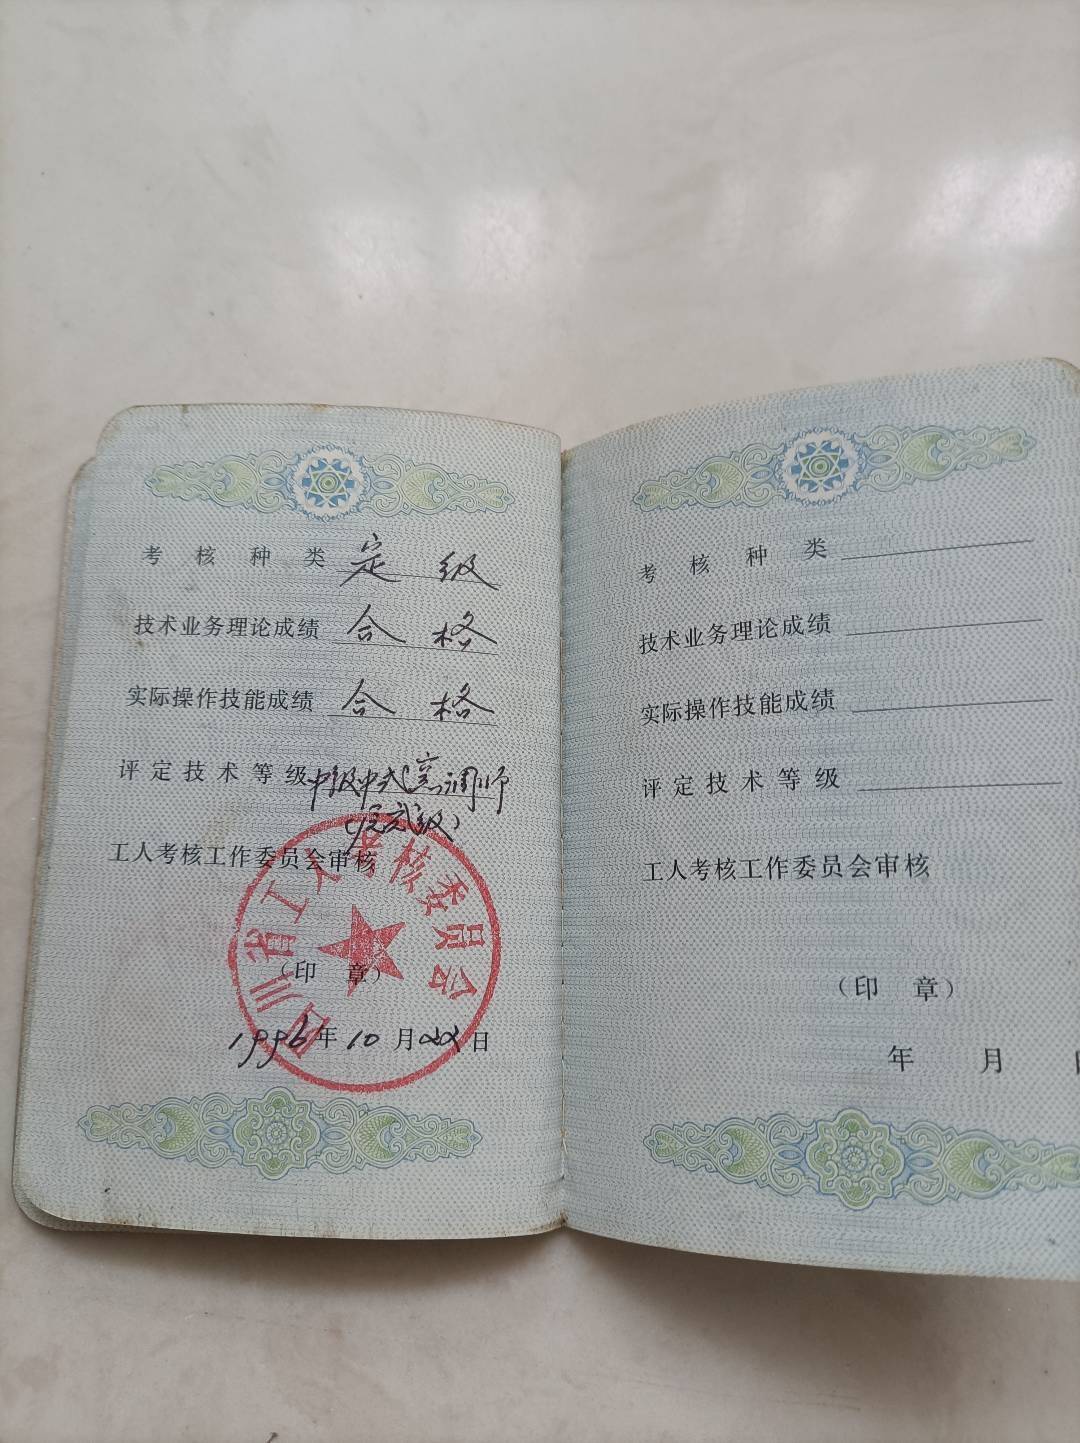 考核种类 定级
技术业务理论成绩 合格
实际操作技能成绩 合格
评定技术等级 中级中式烹调师
工人考核工作委员会审核
四川省工人考核委员会
（印 章）
1996年10月 日
考核种类
技术业务理论成绩
实际操作技能成绩
评定技术等级
工人考核工作委员会审核
（印 章）
年 月